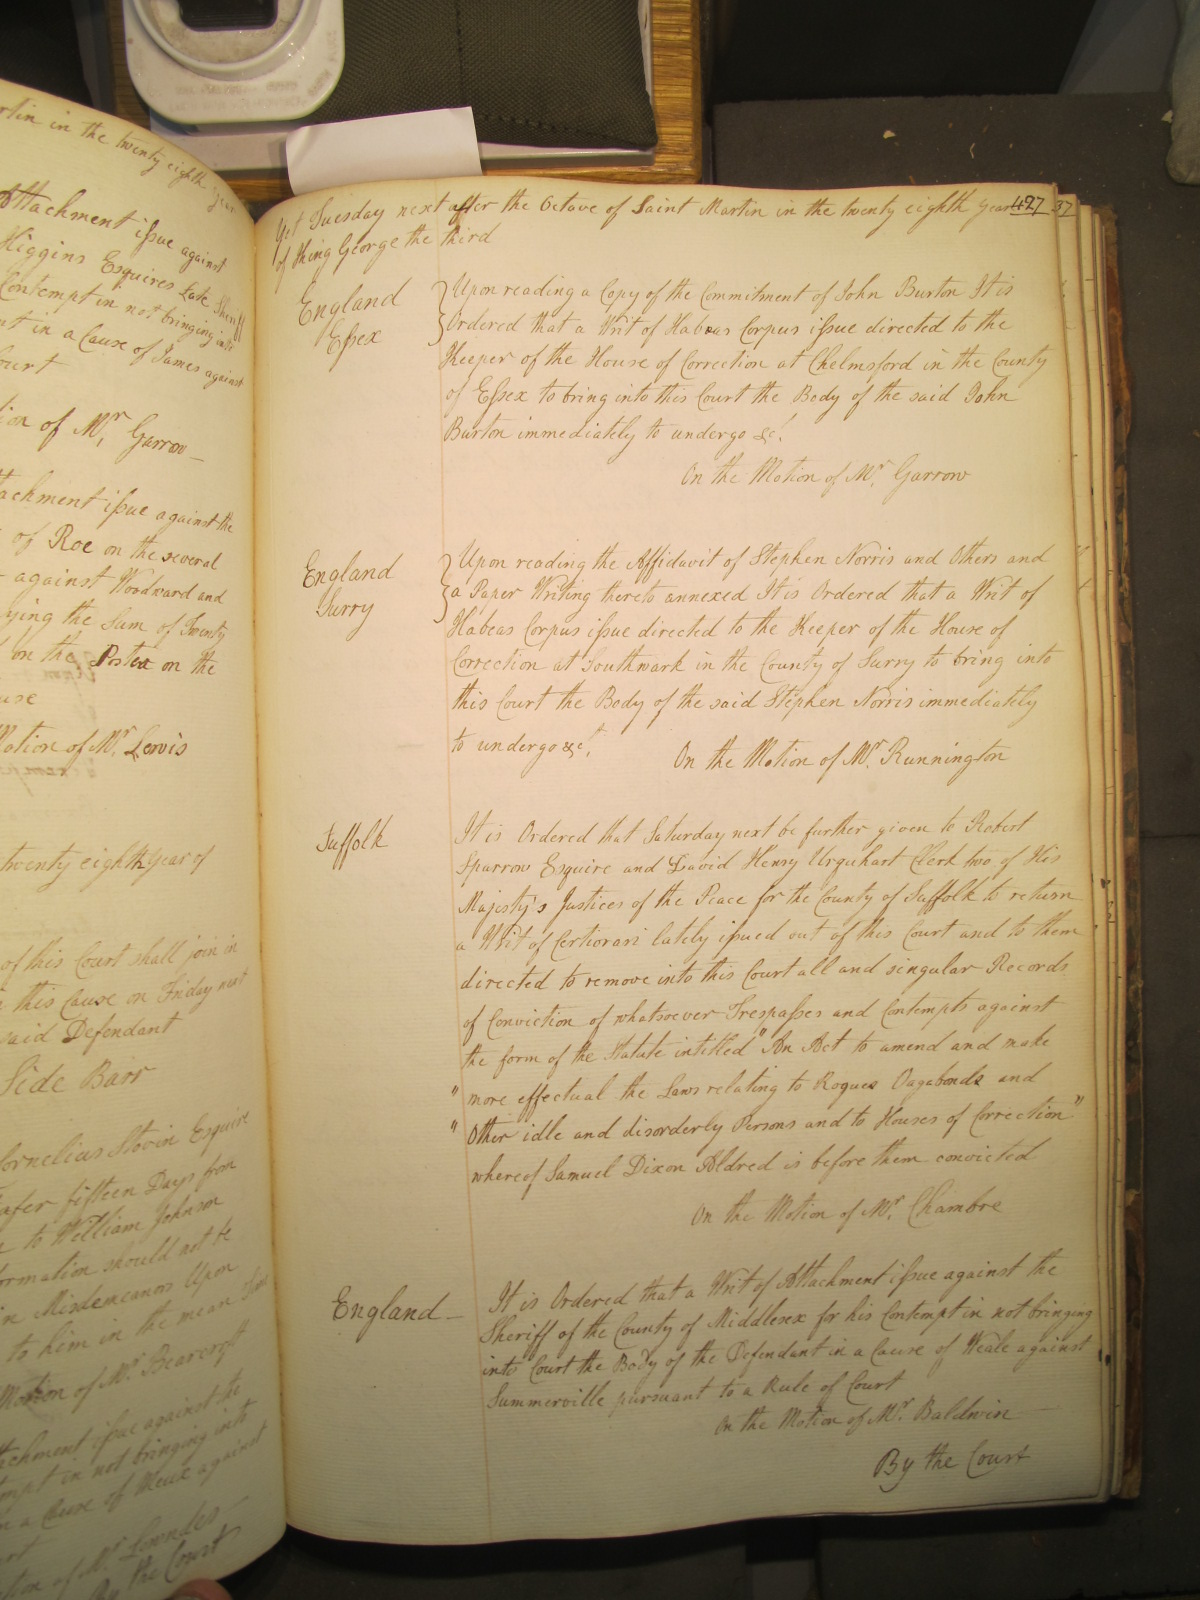 rtin in the twenty eighth year
Attachment issue against
Higgins Esquires Late Sheriff
Contempt in not bringing into
nt in a Cause of James against
Court
tion of Mr. Garrow
tachment issue against the
of Roe on the several
against Woodward and
ying the Sum of Twenty
on the Postea on the
use
Motion of Mr. Lewis
twenty eighth Year of
of this Court shall join in
this Cause on Friday next
said Defendant
Side Barr
Cornelius Stovin Esquire
after fifteen Days from
to William Johnson
formation should not be
in Misdemeanors Upon
to him in the mean time
Motion of Mr. Bearcroft
ttachment issue against the
tempt in not bringing into
in a Cause of Heux against
ourt
otion of Mr. Lowndes
By the Court
Yet Tuesday next after the Octave of Saint Martin in the twenty eighth Year 497 37
of King George the third
England
Essex
Upon reading a Copy of the Commitment of John Burton It is
Ordered that a Writ of Habeas Corpus issue directed to the
Keeper of the House of Correction at Chelmsford in the County
of Essex to bring into this Court the Body of the said John
Burton immediately to undergo &c.
On the Motion of Mr. Garrow
England
Surry
Upon reading the Affidavit of Stephen Norris and Others and
a Paper Writing thereto annexed It is Ordered that a Writ of
Habeas Corpus issue directed to the Keeper of the House of
Correction at Southwark in the County of Surry to bring into
this Court the Body of the said Stephen Norris immediately
to undergo &c.
On the Motion of Mr. Runnington
Suffolk
It is Ordered that Saturday next be further given to Robert
Sparrow Esquire and David Henry Urquhart Clerk two of His
Majesty's Justices of the Peace for the County of Suffolk to return
a Writ of Certiorari lately issued out of this Court and to them
directed to remove into this Court all and singular Records
of Conviction of whatsoever Trespasses and Contempts against
the form of the Statute intitled "An Act to amend and make
" more effectual the Laws relating to Rogues Vagabonds and
" Other idle and disorderly Persons and to Houses of Correction"
whereof Samuel Dixon Aldred is before them convicted
On the Motion of Mr. Chambre
England
It is Ordered that a Writ of Attachment issue against the
Sheriff of the County of Middlesex for his Contempt in not bringing
into Court the Body of the Defendant in a Cause of Weale against
Summerville pursuant to a Rule of Court
On the Motion of Mr. Baldwin
By the Court